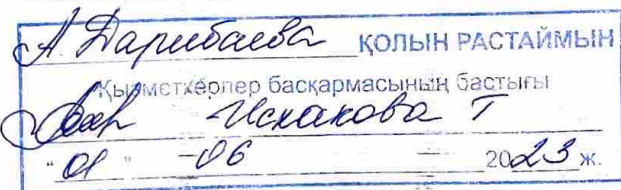 А. Дарибаева ҚОЛЫН РАСТАЙМЫН
Қызметкерлер басқармасының бастығы
Исхакова Т
"01" 06 2023 ж.